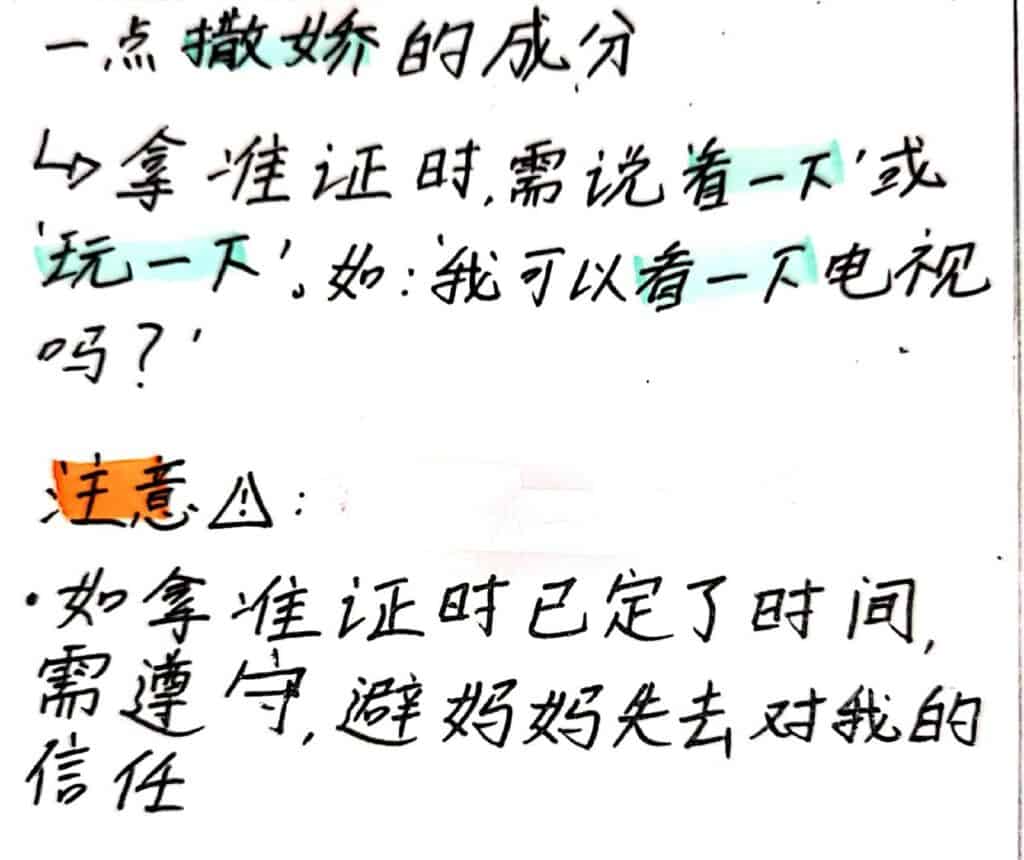 一点撒娇的成分
↳拿准证时,需说看一下'或
'玩一下'。如:'我可以看一下电视
吗?'
注意⚠:
·如拿准证时已定了时间,
需遵守,避妈妈失去对我的
信任